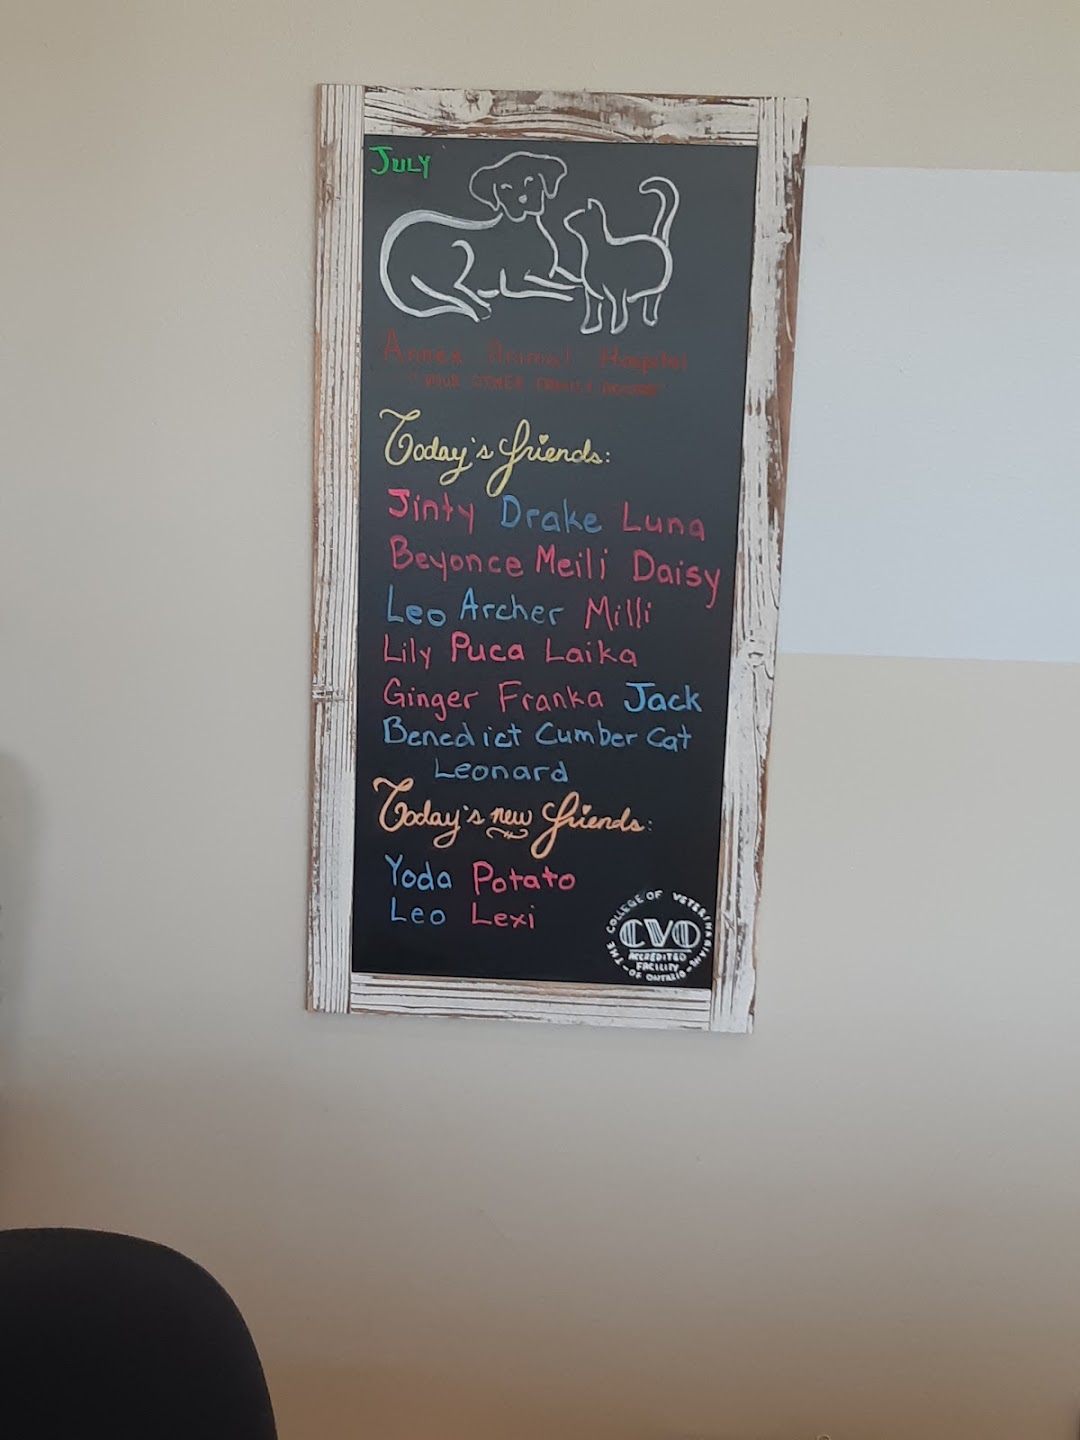 JULY
Annex Animal Hospital
YOUR OTHER FAMILY DOCTOR
Today's friends:
Jinty Drake Luna
Beyonce Meili Daisy
Leo Archer Milli
Lily Puca Laika
Ginger Franka Jack
Benedict Cumber Cat
Leonard
Today's new friends:
Yoda Potato
Leo Lexi
THE COLLEGE OF VETERINARIANS OF ONTARIO
CVO
ACCREDITED
FACILITY